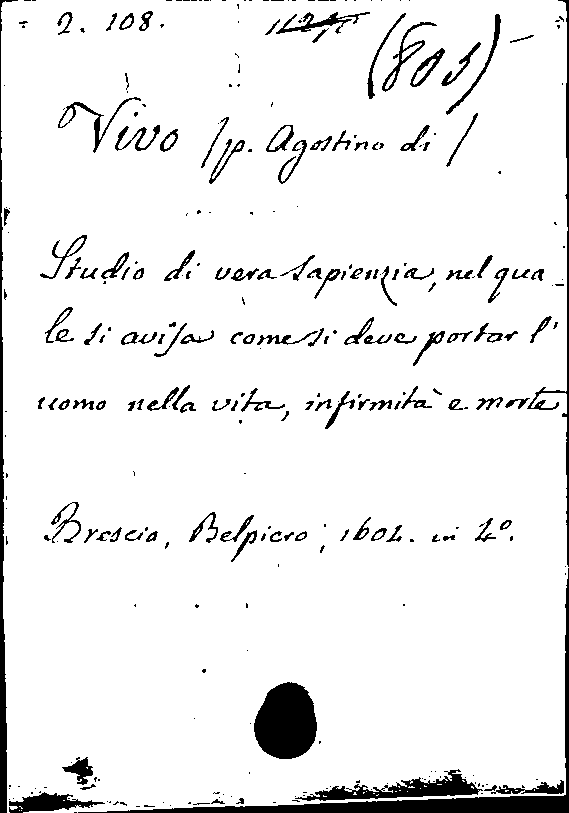 2. 108.
(803)
Vivo /p. Agostino di/
Studio di vera sapienzia, nel qua_
le si avisa come si deve portar l'
uomo nella vita, infirmità e morte.
Brescia, Belpiero, 1604. in 4º.